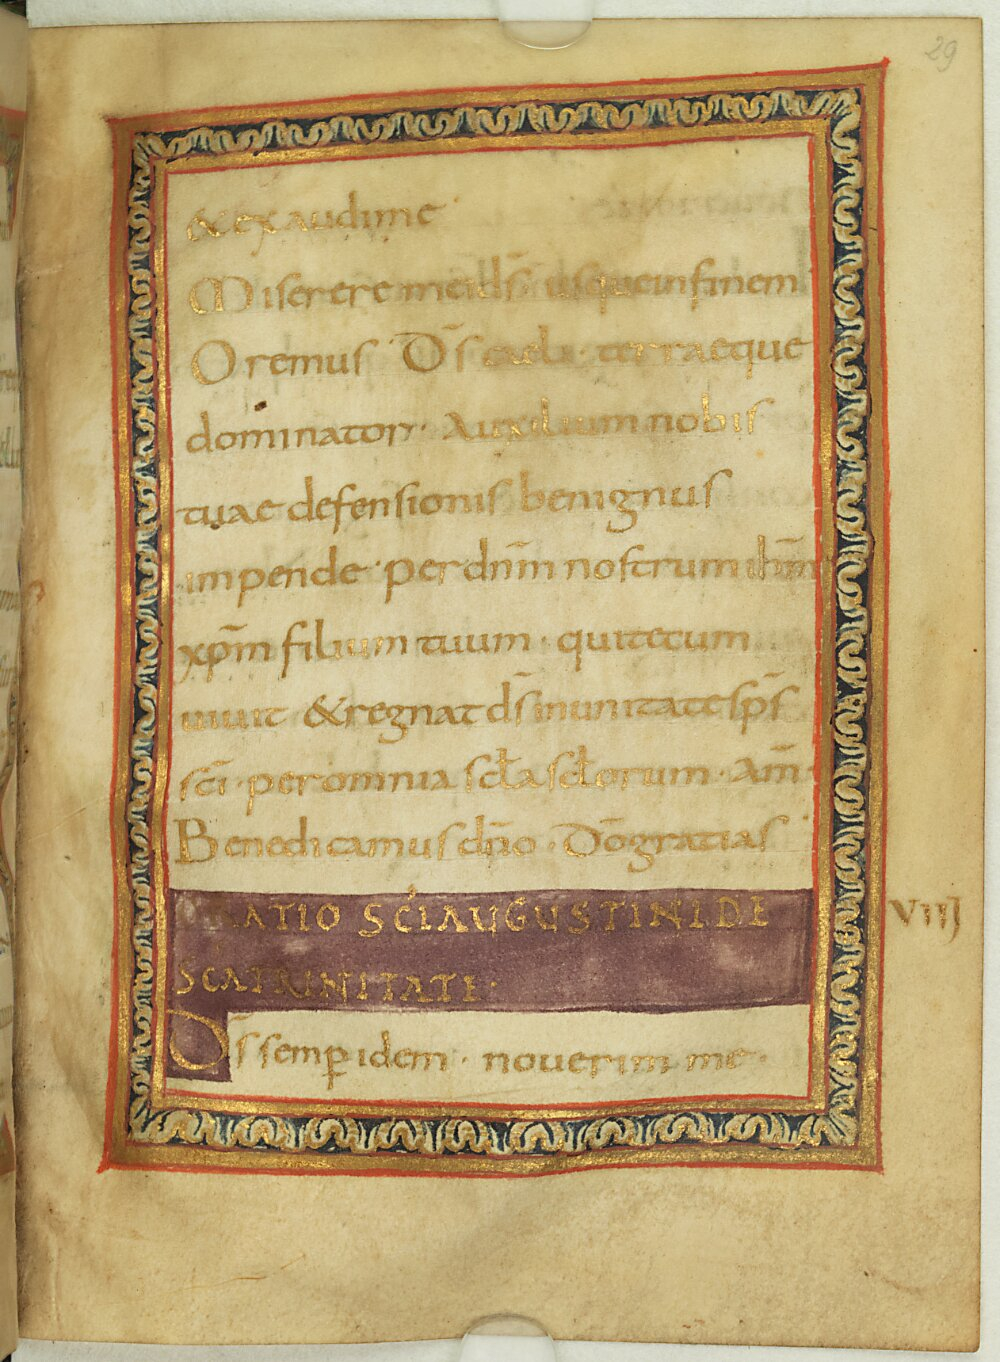 29
& exaudi me
Miserere mei ds̄ usque in finem
Oremus Ds̄ caeli terraeque
dominator· Auxilium nobis
tuae defensionis benignus
impende· per dn̄m nostrum ih̄m
xp̄m filium tuum· qui tecum
uiuit & regnat ds̄ in unitate sp̄s
sc̄i· per omnia scl̄a scl̄orum· Am̄
Benedicamus dn̄o· Dō gratias
ORATIO SC̄I AUGUSTINI DE
SCA TRINITATE·
VIIJ
Ds̄ semꝑ idem· nouerim me·